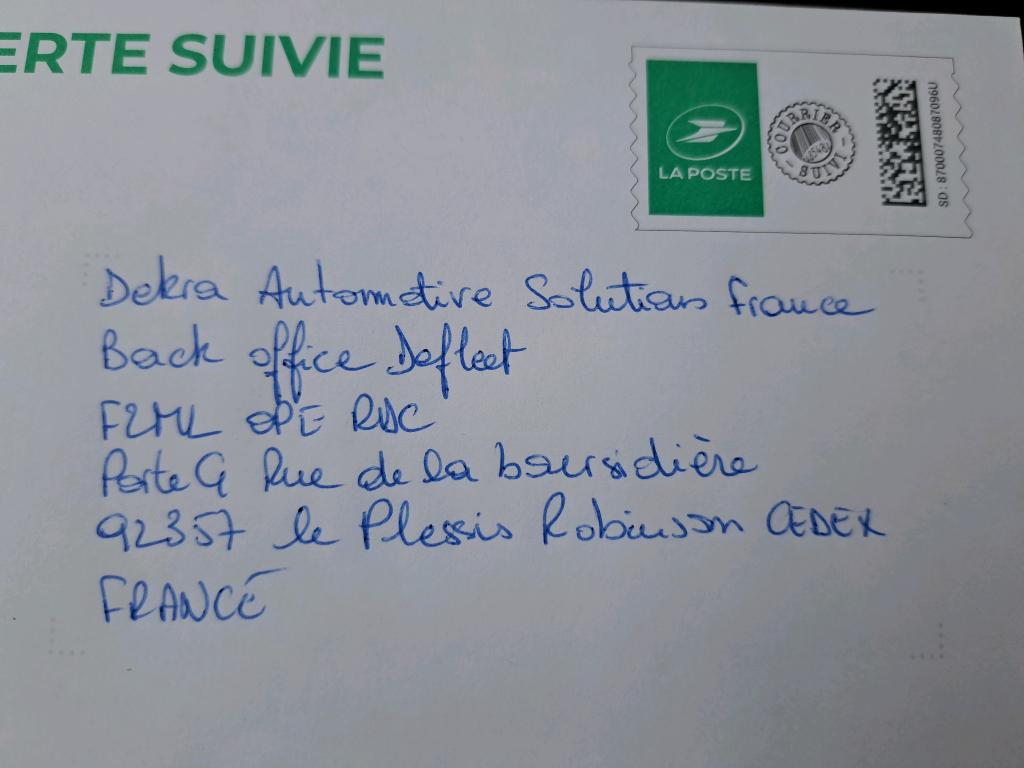 ERTE SUIVIE
LA POSTE
COURRIER
SUIVI
SD : 87000748087096U
Dekra Automotive Solutions france
Back office Defleet
F2ML OPE RDC
Porte G Rue de la boursidière
92357 le Plessis Robinson CEDEX
FRANCE